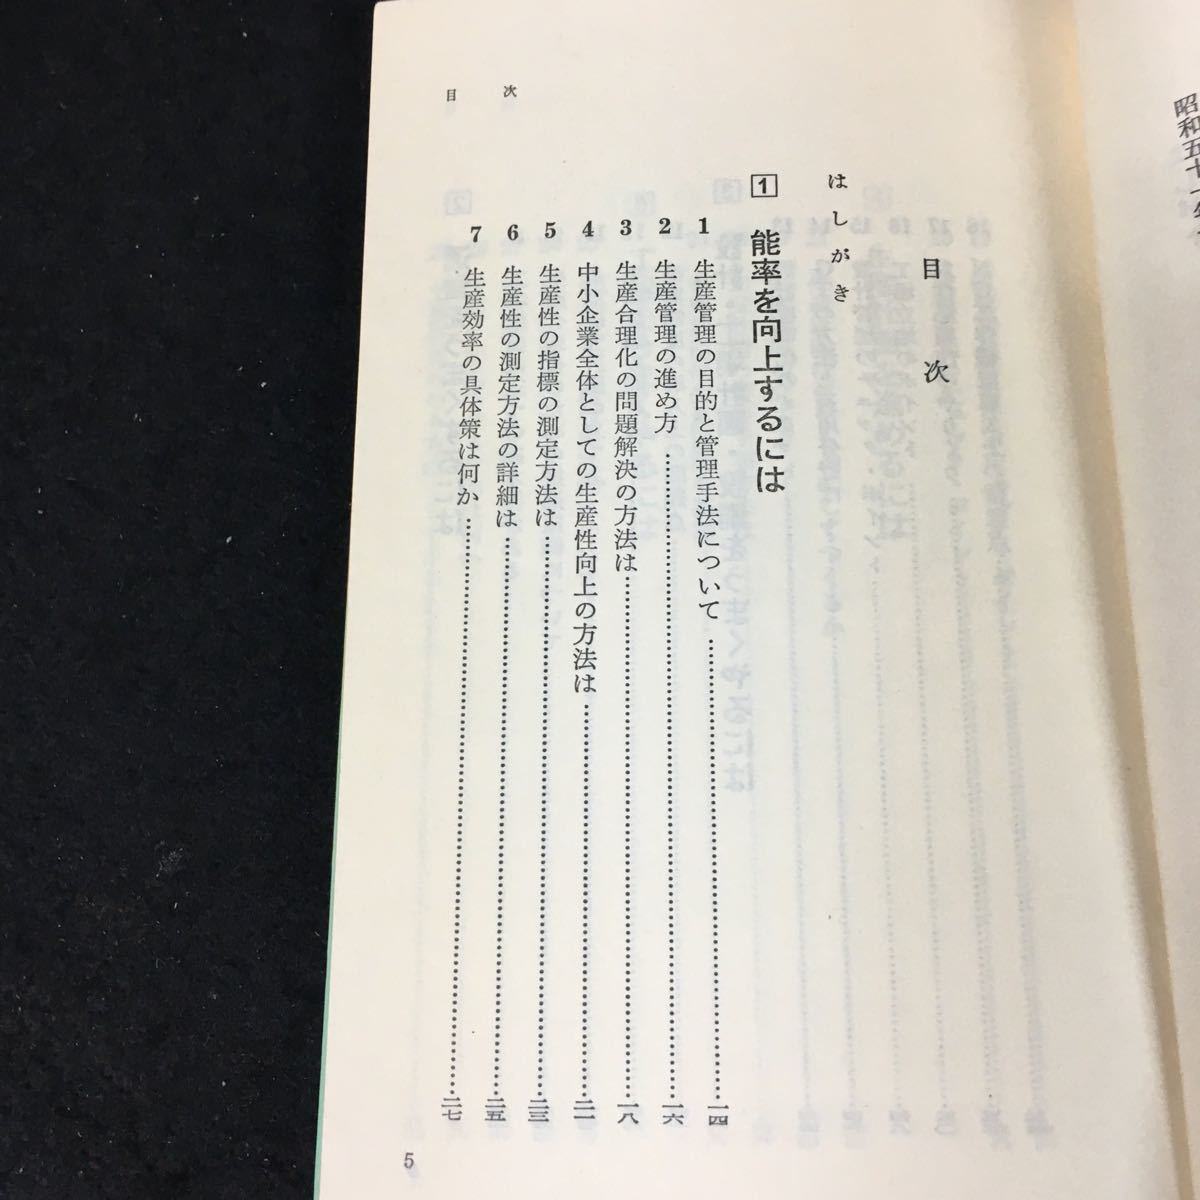 昭和五十一年
目次
はしがき
1 能率を向上するには
1 生産管理の目的と管理手法について……一四
2 生産管理の進め方……一六
3 生産合理化の問題解決の方法は……一八
4 中小企業全体としての生産性向上の方法は……二一
5 生産性の指標の測定方法は……二三
6 生産性の測定方法の詳細は……二五
7 生産効率の具体策は何か……二七
目次
5